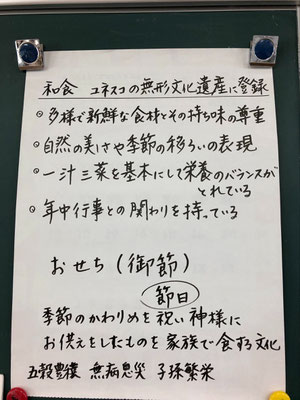 和食 ユネスコの無形文化遺産に登録
◎多様で新鮮な食材とその持ち味の尊重
◎自然の美しさや季節の移ろいの表現
◎一汁三菜を基本にして栄養のバランスが
とれている
◎年中行事との関わりを持っている
おせち(御節)
節日
季節のかわりめを祝い神様に
お供えをしたものを家族で食する文化
五穀豊穣 無病息災 子孫繁栄